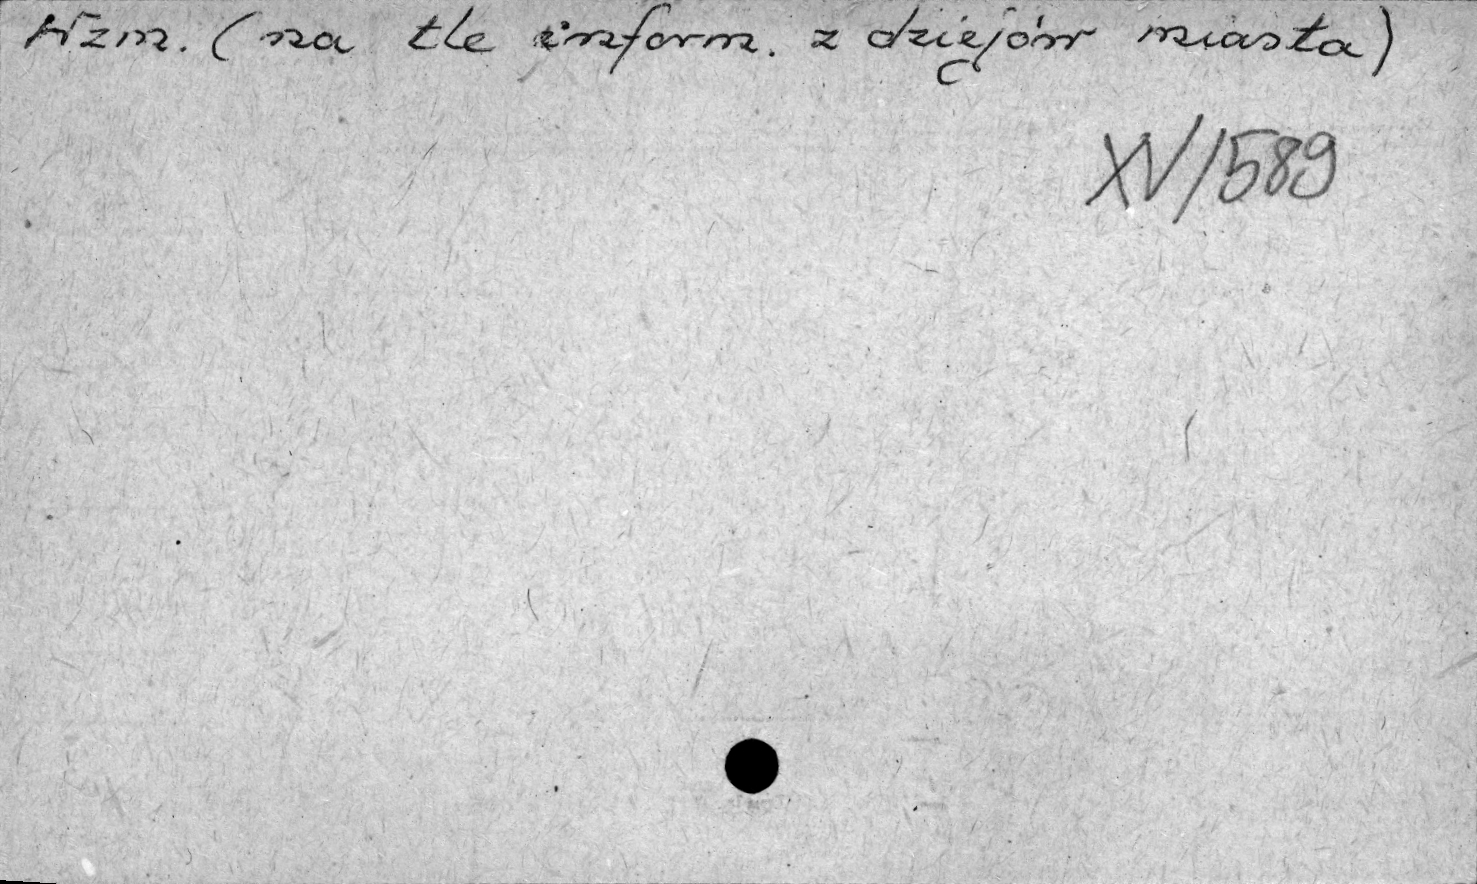 Wzm. (na tle inform. z dziejów miasta)
XV/1589